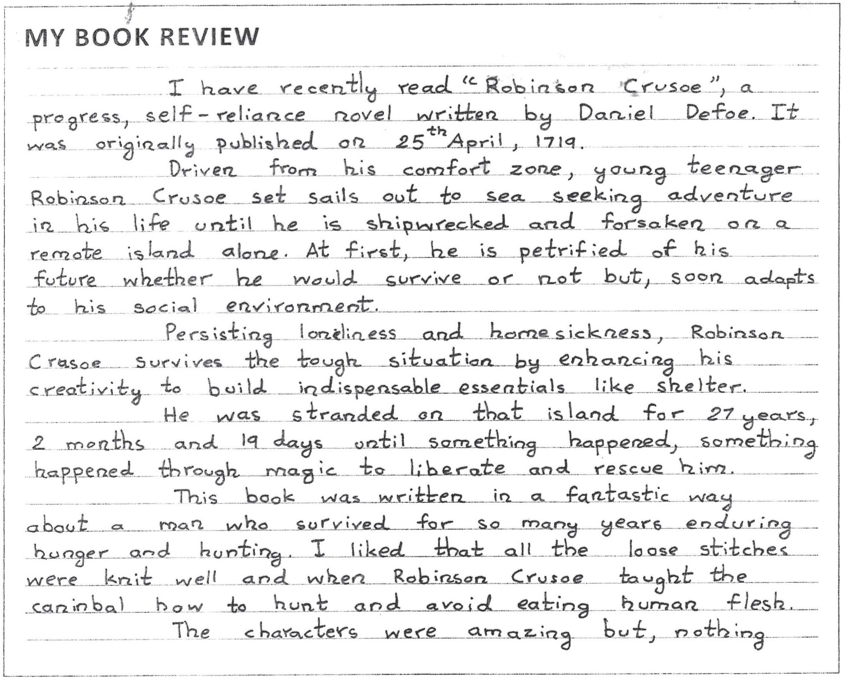 MY BOOK REVIEW
I have recently read "Robinson Crusoe", a
progress, self-reliance novel written by Daniel Defoe. It
was originally published on 25th April, 1719.
Driven from his comfort zone, young teenager
Robinson Crusoe set sails out to sea seeking adventure
in his life until he is shipwrecked and forsaken on a
remote island alone. At first, he is petrified of his
future whether he would survive or not but, soon adapts
to his social environment.
Persisting loneliness and homesickness, Robinson
Crusoe survives the tough situation by enhancing his
creativity to build indispensable essentials like shelter.
He was stranded on that island for 27 years,
2 months and 19 days until something happened, something
happened through magic to liberate and rescue him.
This book was written in a fantastic way
about a man who survived for so many years enduring
hunger and hunting. I liked that all the loose stitches
were knit well and when Robinson Crusoe taught the
caninbal how to hunt and avoid eating human flesh.
The characters were amazing but, nothing